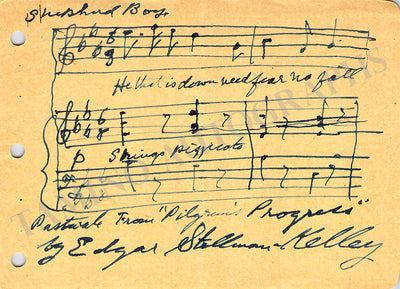 Shepherd Boy
He that is down need fear no fall
p Strings pizzicato
Pastorale From "Pilgrim's Progress"
by Edgar Stillman-Kelley